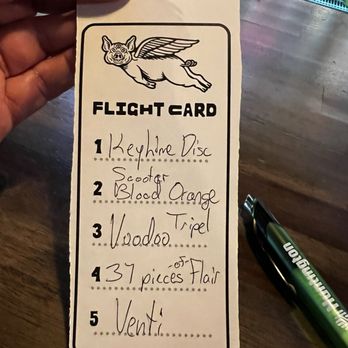 FLIGHT CARD
1 Keylime Disc
Scooter
2 Blood Orange
3 Voodoo Tripel
4 37 pieces of Flair
5 Venti
Huntington